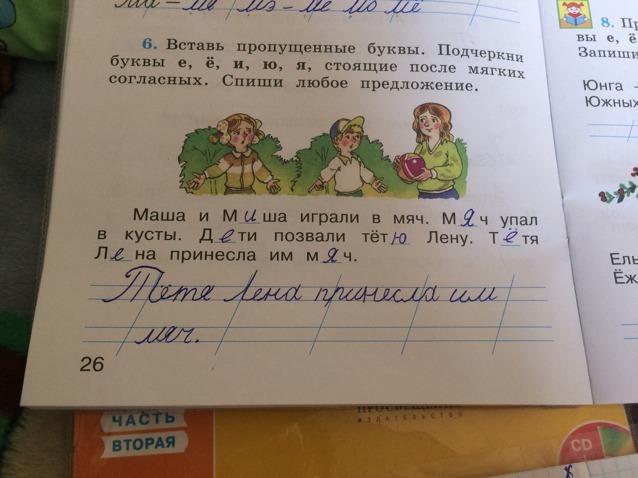 6. Вставь пропущенные буквы. Подчеркни
буквы е, ё, и, ю, я, стоящие после мягких
согласных. Спиши любое предложение.
Маша и Миша играли в мяч. Мяч упал
в кусты. Дети позвали тётю Лену. Тётя
Лена принесла им мяч.
Тетя Лена принесла им
мяч.
26
8.
вы е, ё
Запиши
Юнга -
Южных
Ель
Ёж
ЧАСТЬ
ВТОРАЯ
ИЗДАТЕЛЬСТВО
CD